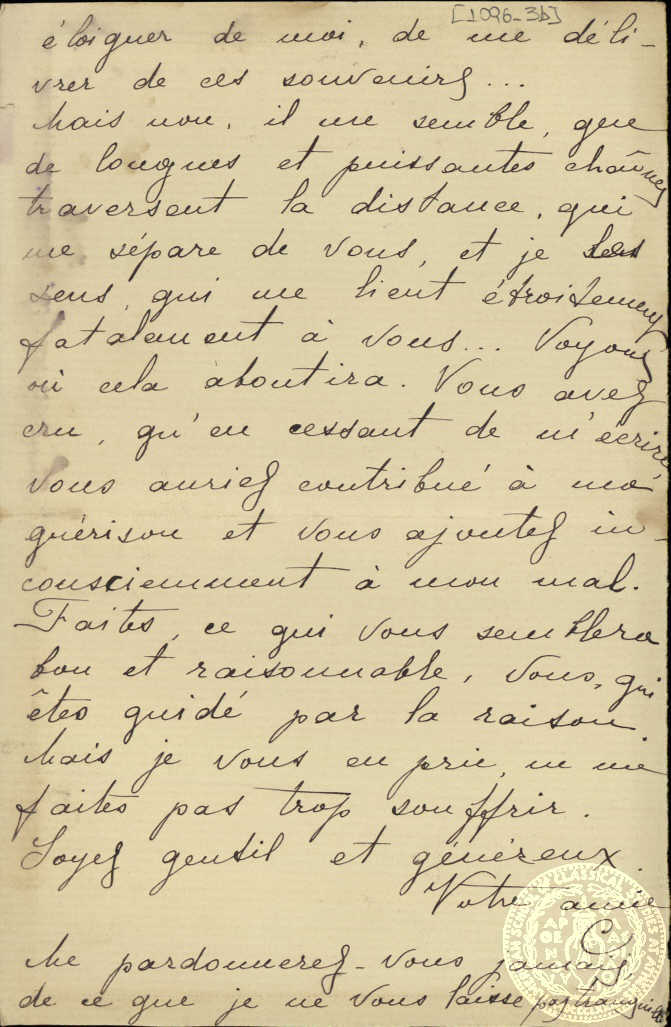 [1096-3b]
éloigner de moi, de me déli-
vrer de ces souvenirs...
Mais non, il me semble, que
de longues et puissantes chaînes
traversent la distance, qui
me sépare de vous, et je les
sens, qui me lient étroitement,
fatalement à vous... Voyons
où cela aboutira. Vous avez
cru, qu'en cessant de m'écrire,
vous auriez contribué à ma
guérison et vous ajoutez in-
consciemment à mon mal.
Faites, ce qui vous semblera
bon et raisonnable, vous, qui
êtes guidé par la raison.
Mais je vous en prie, ne me
faites pas trop souffrir.
Soyez gentil et généreux.
Votre amie
Me pardonnerez-vous jamais,
de ce que je ne vous laisse pas tranquille